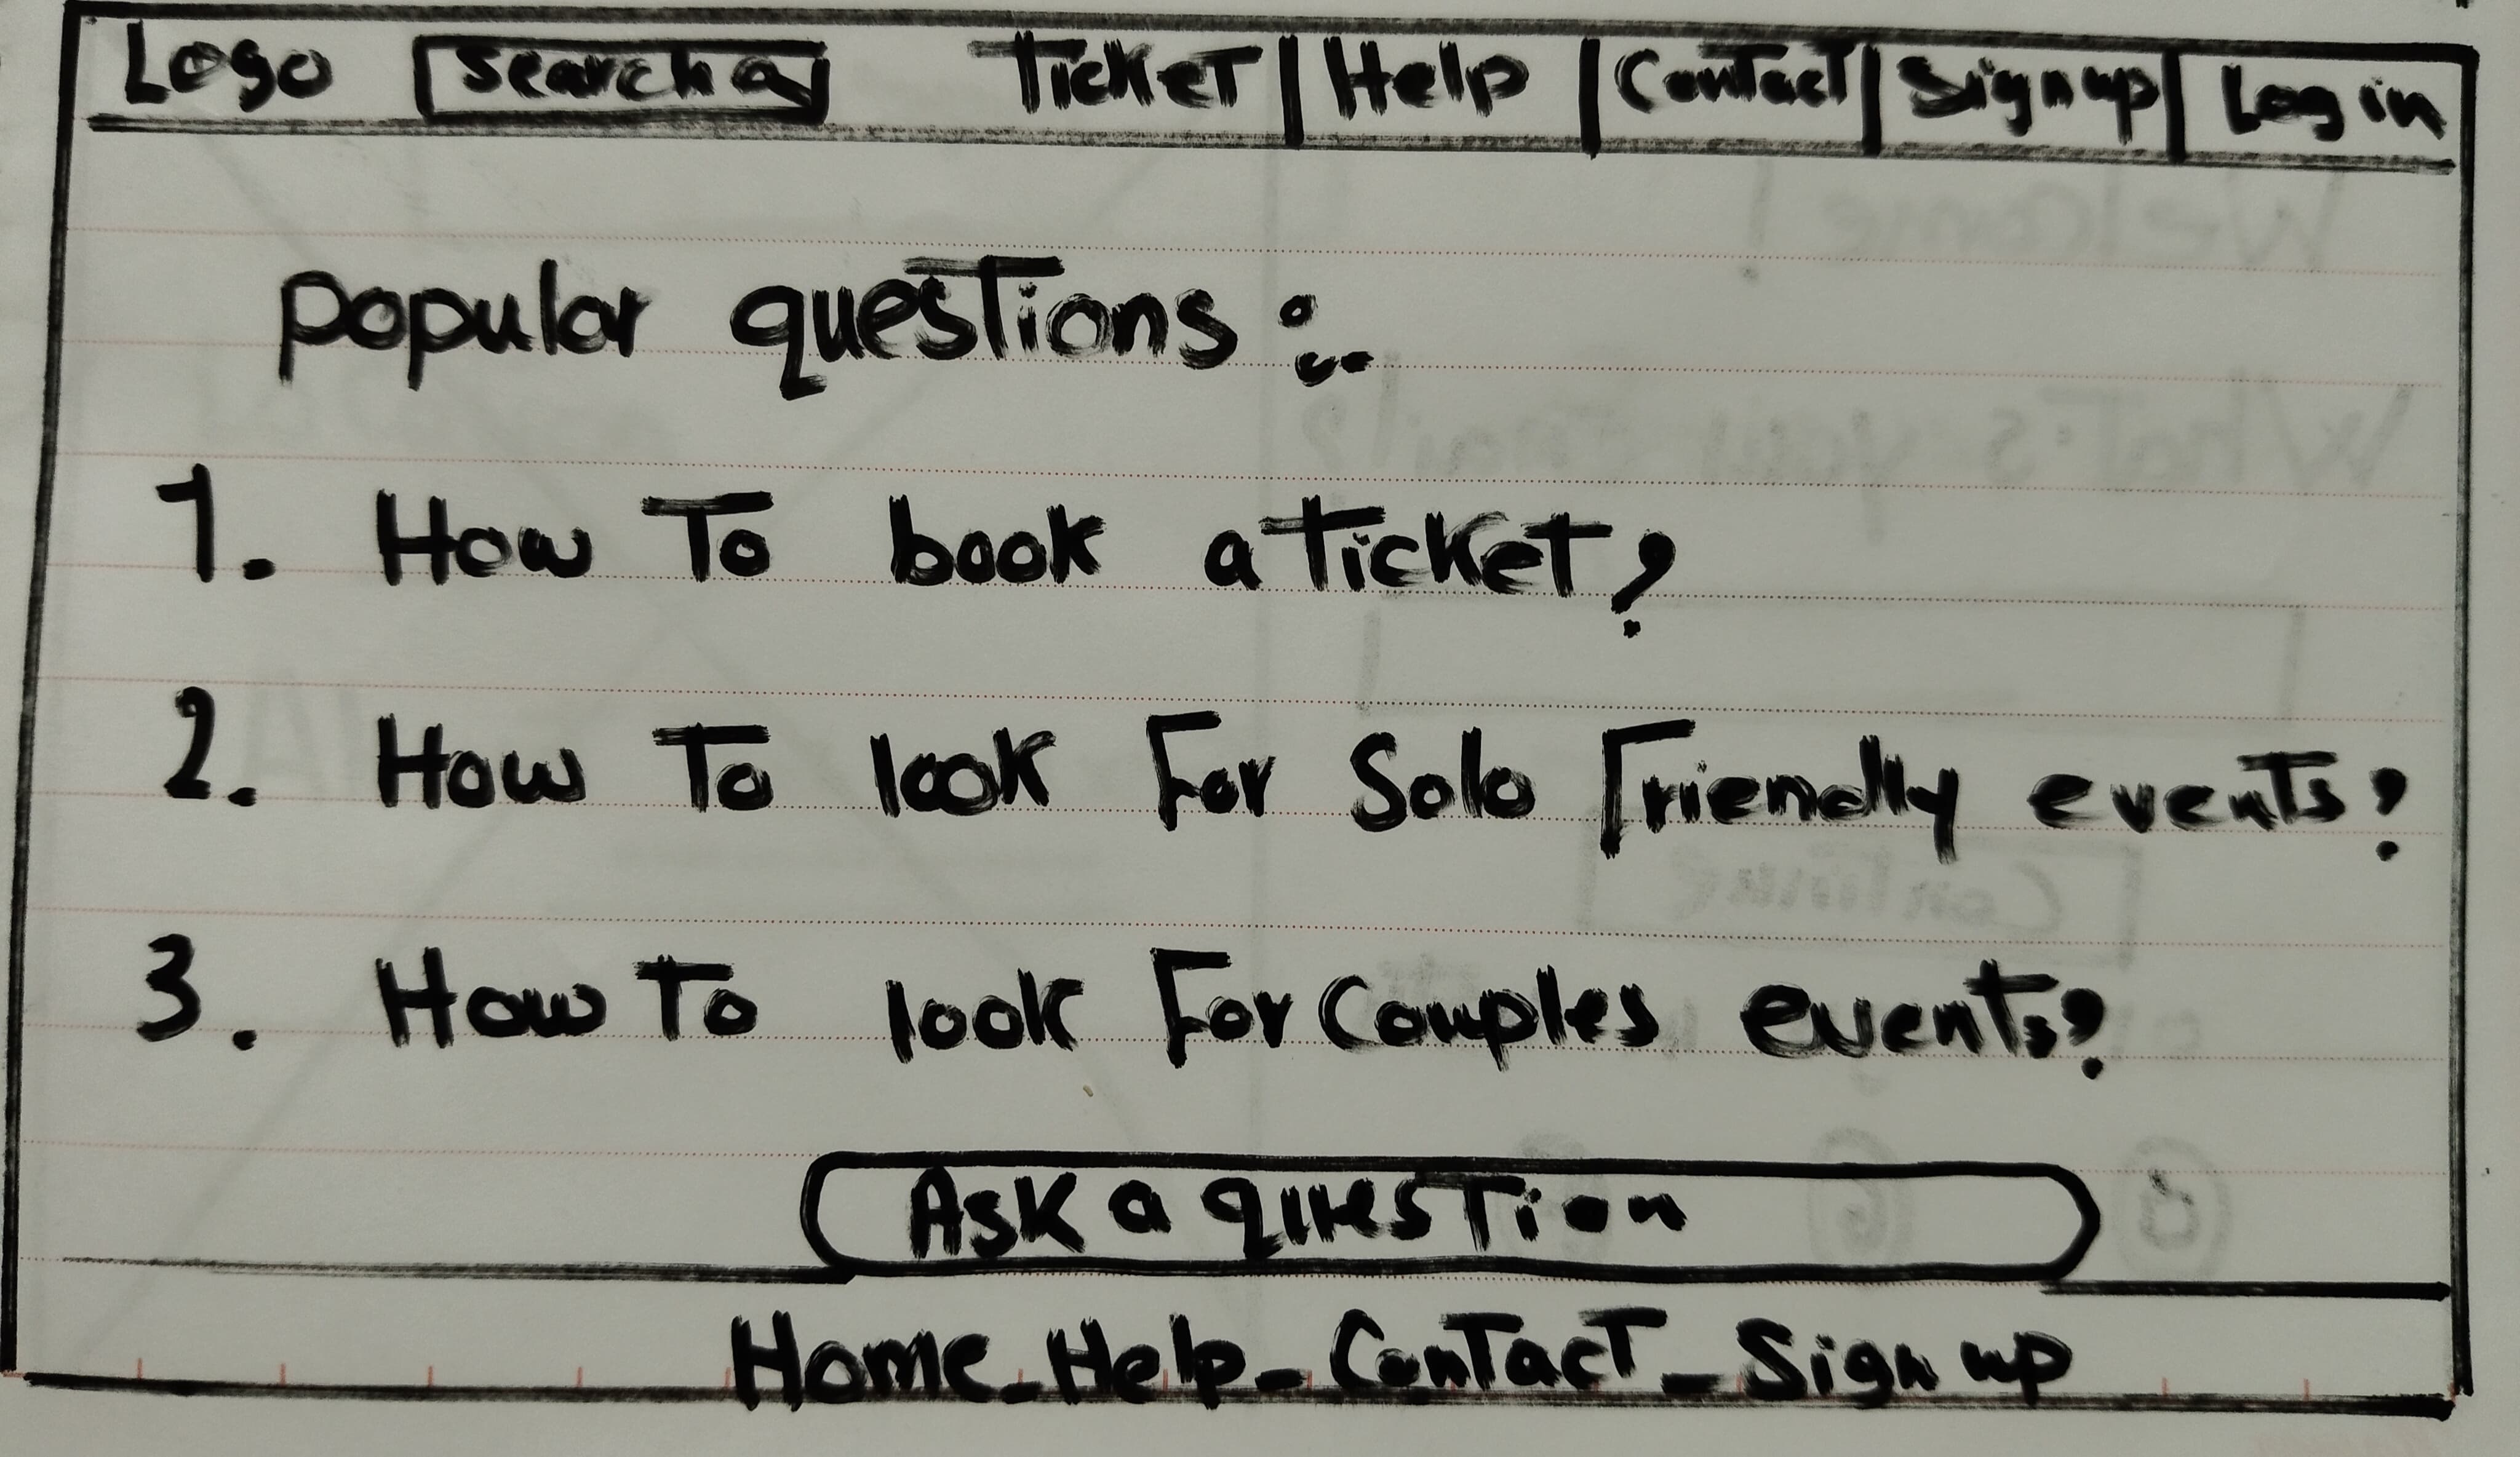 Logo Search Ticket | Help | Contact | Sign up | Log in
popular questions :-
1. How To book a Ticket?
2. How To look For Solo Friendly events?
3. How To look For Couples events?
Ask a question
Home - Help - Contact - Sign up